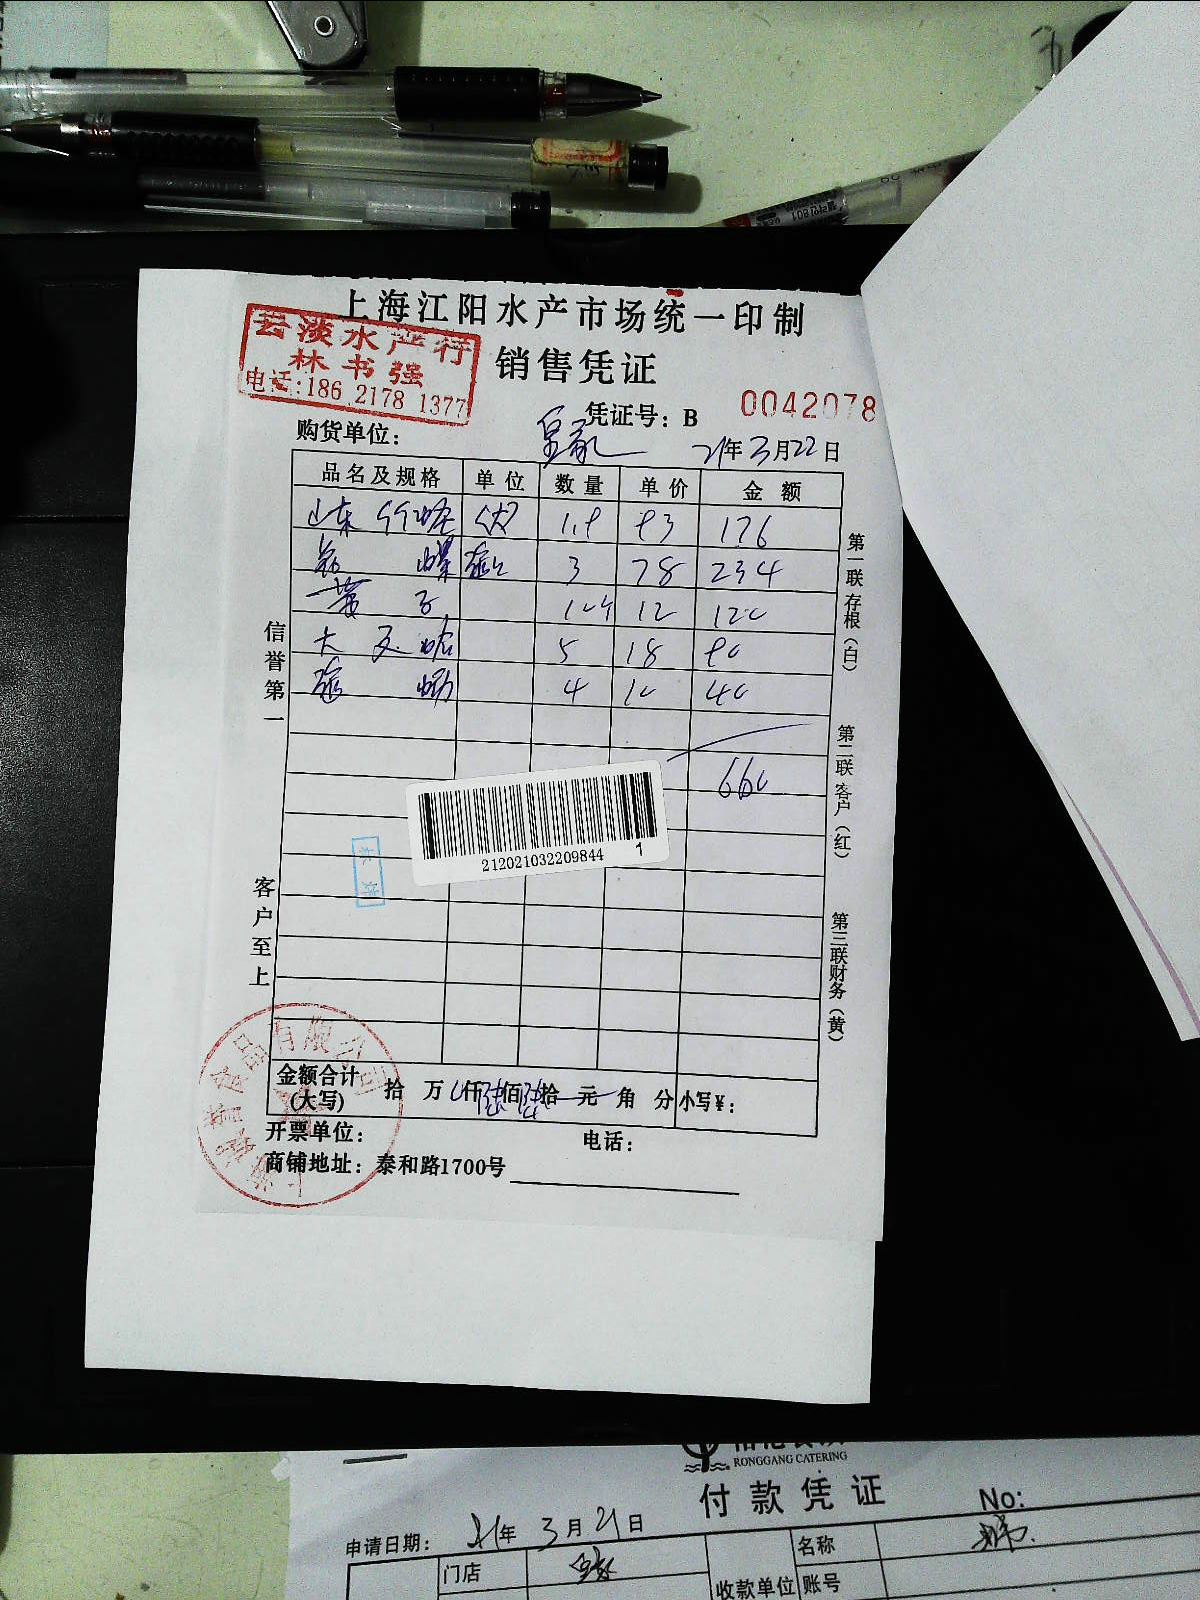 上海江阳水产市场统一印制
云淡水产行
林书强
电话:186 2178 1377
销售凭证
凭证号：B 0042078
购货单位： 皇家 21年3月22日
品名及规格 单位 数量 单价 金额
山东竹蛏
螺 3 78 234
黄 子 12 120
大 文蛤 5 18 90
4 10 40
660
212021032209844 1
信誉第一
客户至上
第一联存根（白）
第二联客户（红）
第三联财务（黄）
金额合计(大写) 拾 万 仟陆佰陆拾 元 角 分 小写¥：
开票单位： 电话：
商铺地址：泰和路1700号
食品有限公司
RONGGANG CATERING
付款凭证
No:
申请日期： 21年3月21日
门店 皇家
收款单位 名称
账号